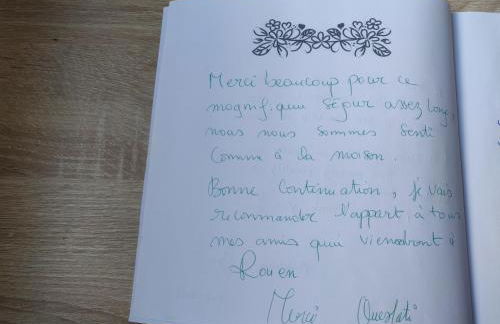 Merci beaucoup pour ce
magnifique séjour assez long,
nous nous sommes senti
comme à la maison.
Bonne continuation, je vais
recommander l'appart à tous
mes amis qui viendront à
Rouen
Merci Oueslati